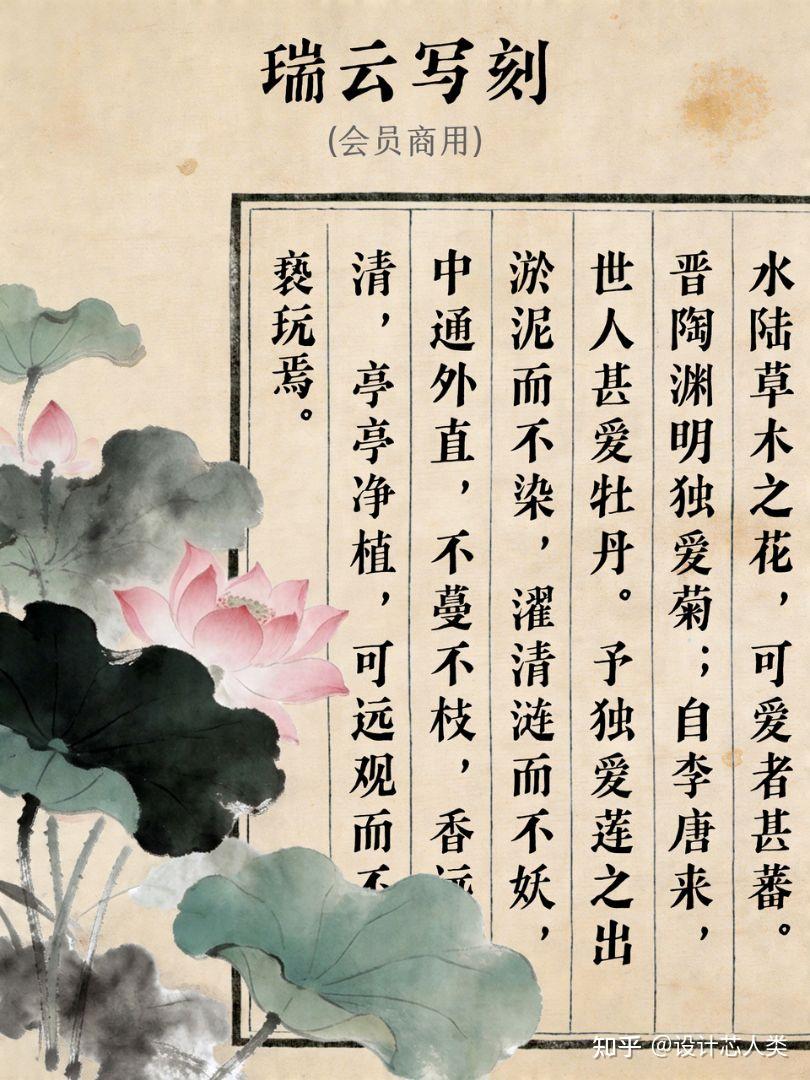 瑞云写刻
(会员商用)
水陆草木之花，可爱者甚蕃。
晋陶渊明独爱菊；自李唐来，
世人甚爱牡丹。予独爱莲之出
淤泥而不染，濯清涟而不妖，
中通外直，不蔓不枝，香远
清，亭亭净植，可远观而不
亵玩焉。
知乎 @设计芯人类